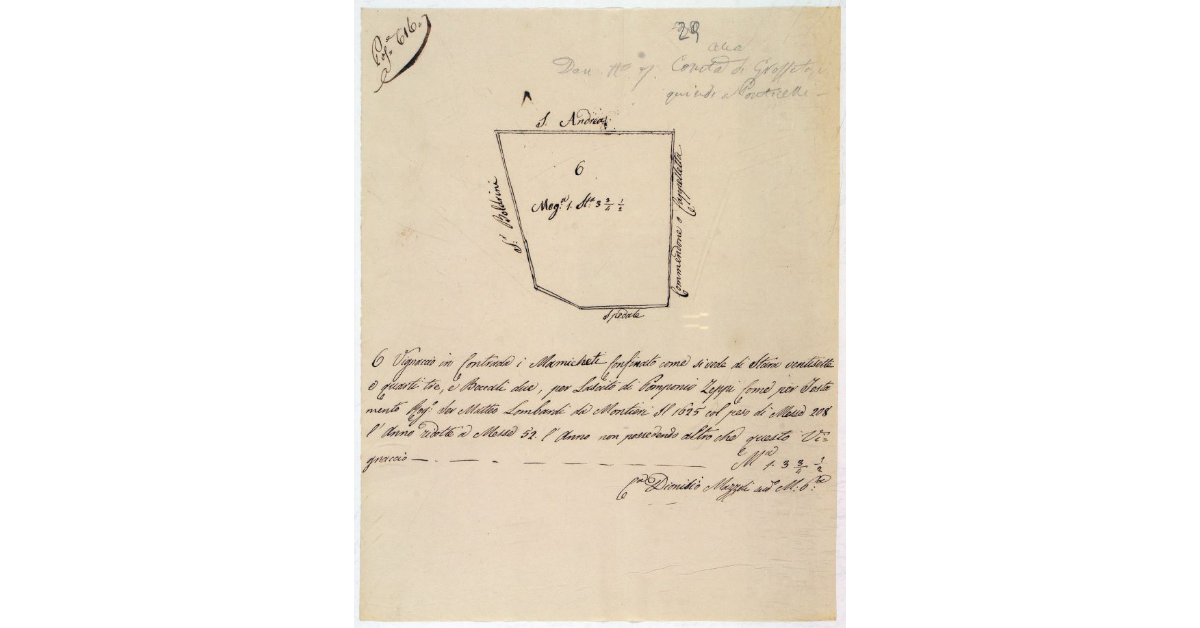 Pos.e 616.
29
alla
Comtà di Grosseto
quindi a
S. Andrea
6
Mog.a 1. St.a 3 3/4 1/2
S.r Boldrini
Commendone o Cappelletta
Spedale
6 Vignaccio in Contrada i Mamicheti Confinato come si vede di Stara ventisette
e quarti tre, e Boccali due, per Lascito di Pomponio Zeppi Come per Testa
mento Rog. Ser Matteo Lombardi da Montieri Il 1625 col peso di Messe 208
l' Anno ridotte a Messe 52. l' Anno non possedendo altro che questo Vi=
gnaccio — M.a 1. 3 3/4 1/2
Dionisio Mazzoli